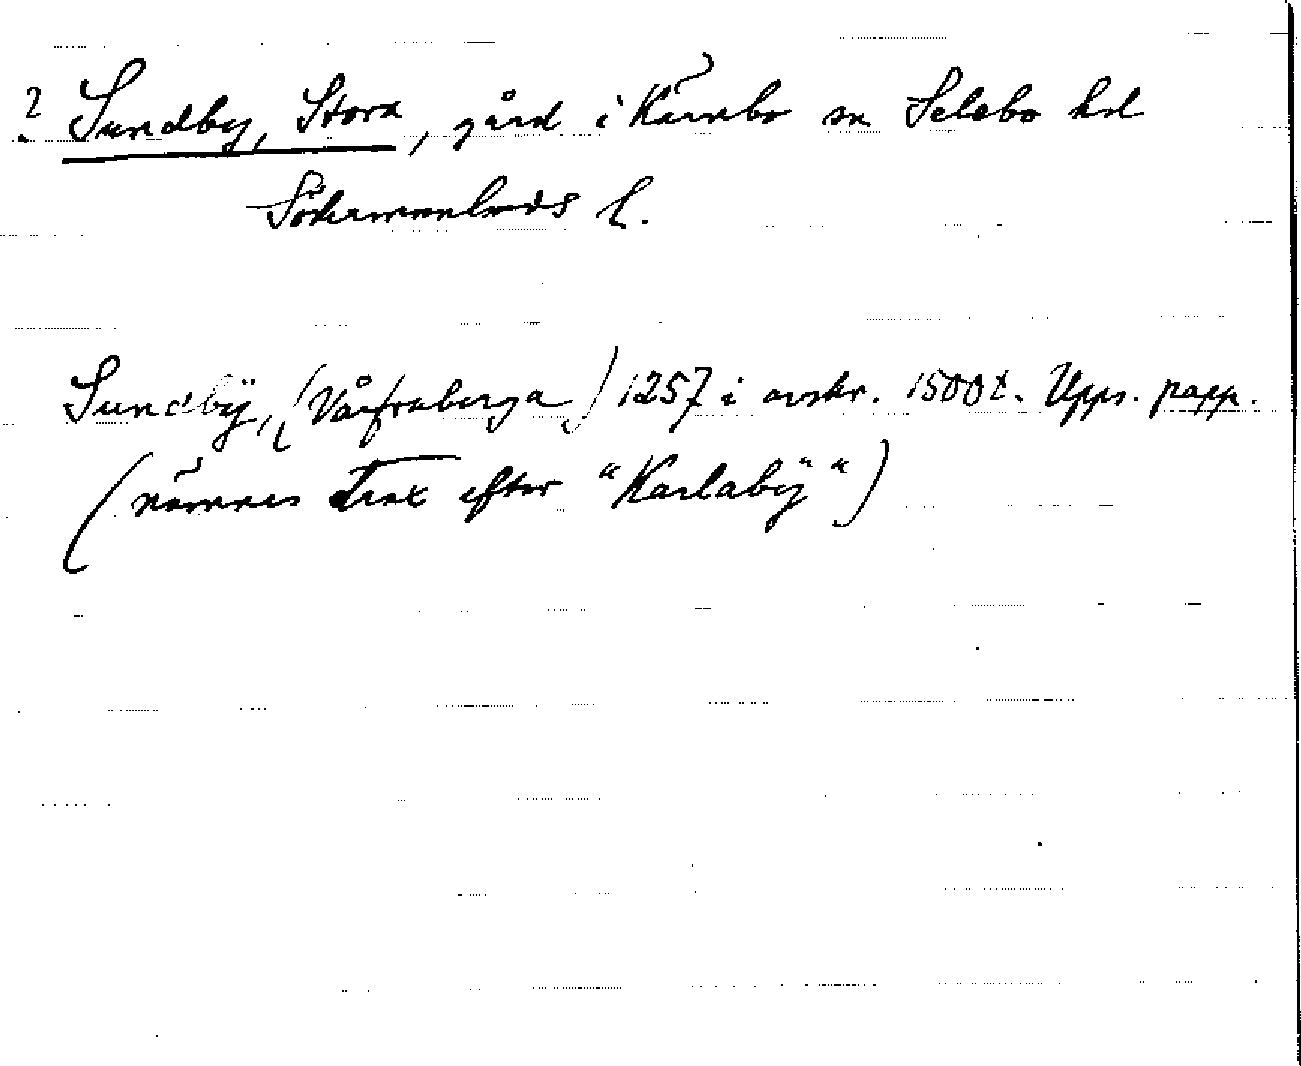 ? Sundby, Stora, gård i Kärnbo sn Selebo hd
Södermanlands l.
Sundbÿ, (Vårfruberga) 1257 i avskr. 1500t. Upps. papp.
(nämnes strax efter "Karlabÿ")